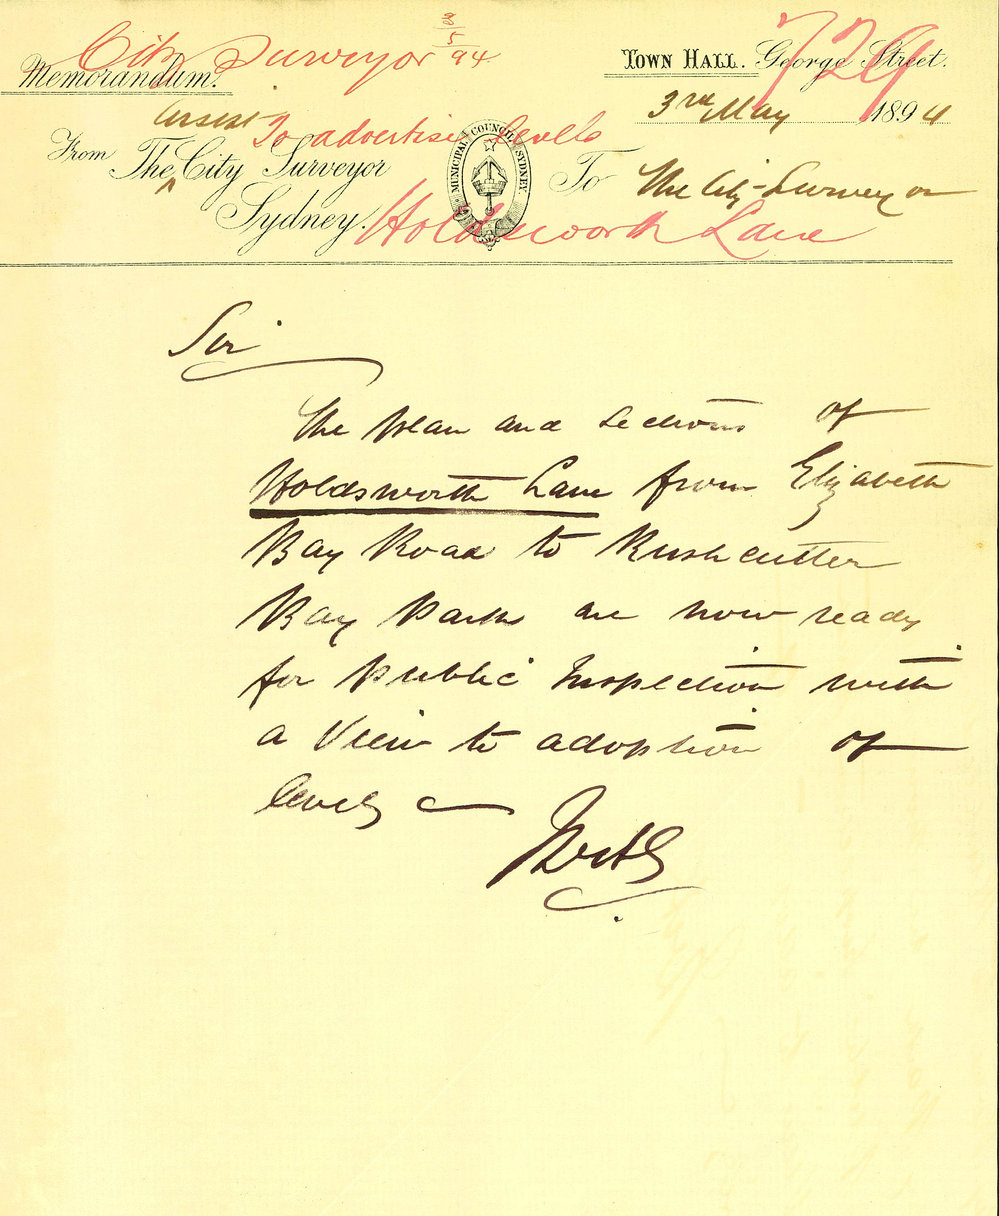 City Surveyor
94
729
Memorandum.
TOWN HALL. George Street.
3rd May 1894
assist To advertise levels
From The City Surveyor
MUNICIPAL COUNCIL SYDNEY
To The City Surveyor
Sydney.
Holdsworth Lane
Sir
The plan and sections of
Holdsworth Lane from Elizabeth
Bay Road to Rushcutter
Bay Park are now ready
for public Inspection with
a View to adoption of
levels